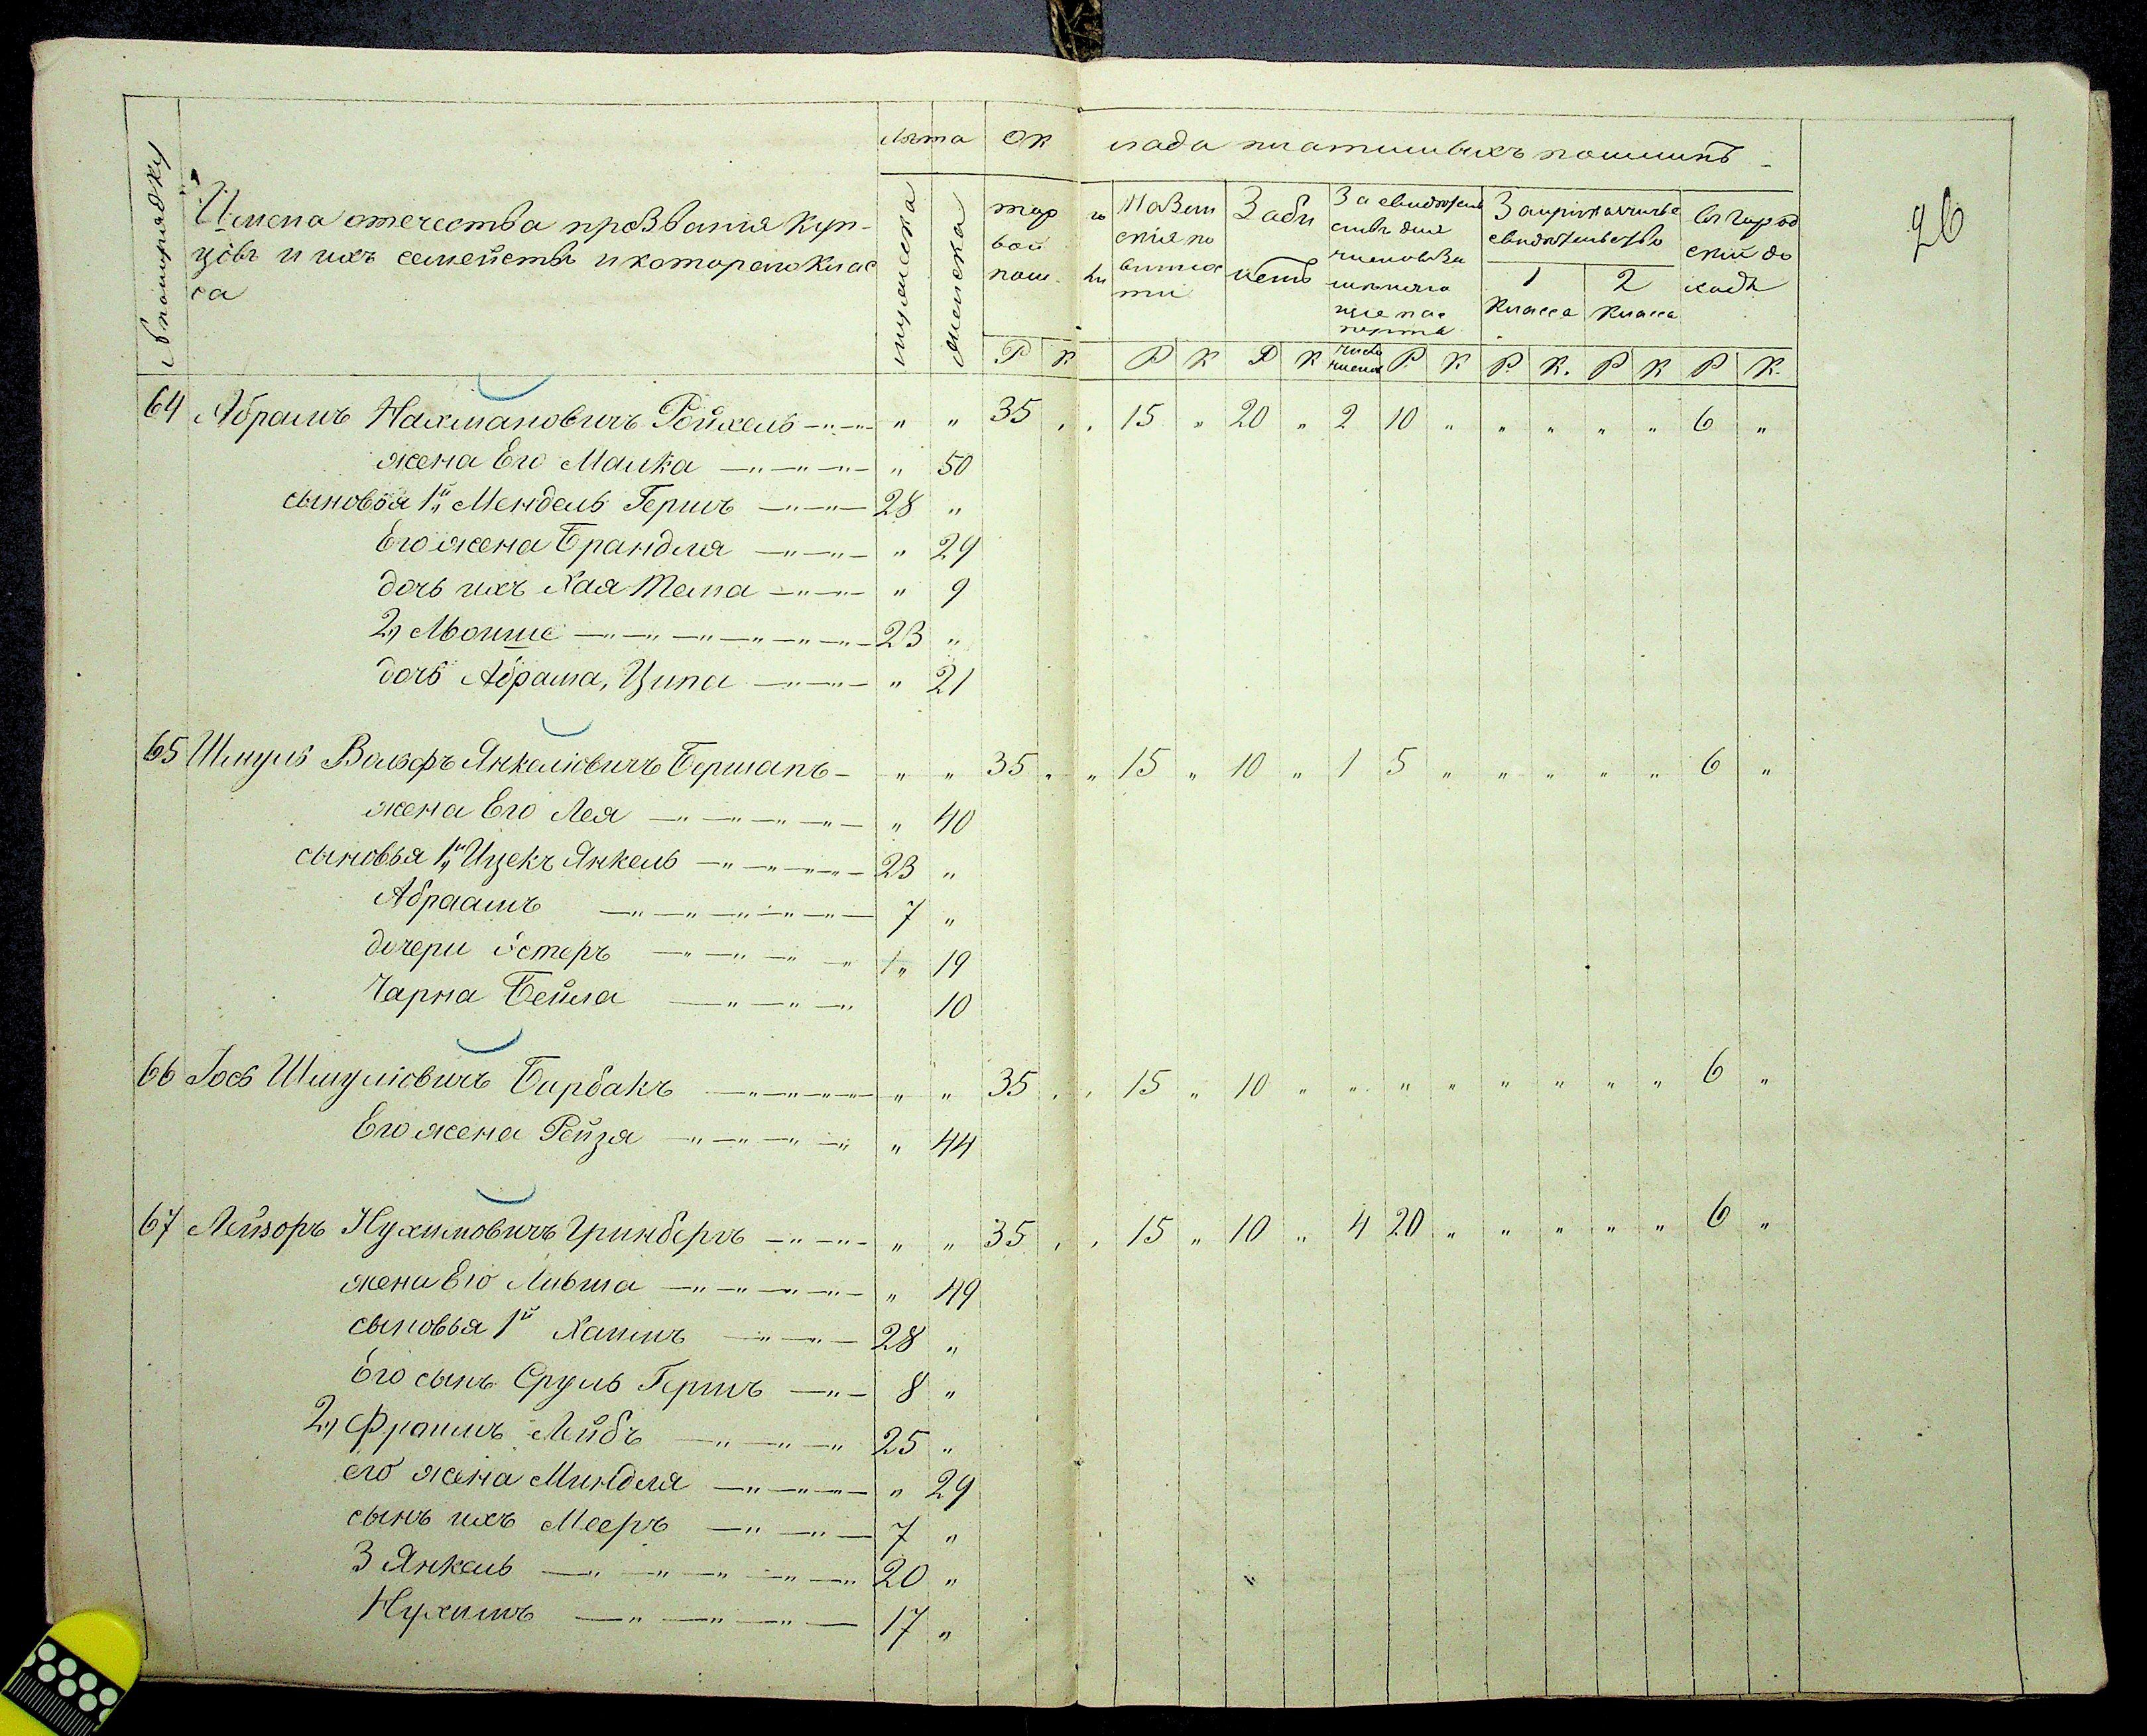 № по порядку
Имена отечества прозвания куп-
цовъ и ихъ семействъ и котораго клас
са
Лѣта
мужеска
женска
Оклада платимыхъ пошлинъ
торговой пошлины
На Земскія повинности
За билетъ
За свидѣтельства для членовъ
За прикащичье свидѣтельство
1 класса 2 класса
въ Городской доходъ
26
Р К Р К Р К число членовъ Р. К Р. К. Р К Р К.
64 Абрамъ Нахмановичъ Ройхель „ „ 35 „ 15 „ 20 „ 2 10 „ „ „ „ „ 6 „
жена Его Малка „ 50
сыновья 1й Мендель Гершъ 28 „
Его жена Брандля „ 29
дочь ихъ Хая Тема „ 9
2, Мошше 23 „
дочь Абрама, Ципа „ 21
65 Шмуль Вольфъ Янкеліовичъ Берманъ „ „ 35 „ „ 15 „ 10 „ 1 5 „ „ „ „ „ 6 „
жена Его Лея „ 40
сыновья 1й Ицекъ Янкель 23 „
Абраамъ 7 „
дочери Эстеръ „ 19
Чарна Бейла 10
66 Іось Шмуліовичъ Бирбакъ „ „ 35 „ „ 15 „ 10 „ „ „ „ „ „ „ „ 6 „
Его жена Рейзя „ 44
67 Лейзоръ Нухимовичъ Гринбергъ „ „ 35 „ „ 15 „ 10 „ 4 20 „ „ „ „ „ 6 „
жена Его Ливша „ 49
сыновья 1й Хаимъ 28 „
Его сынъ Сруль Гершъ 8 „
2, Фроимъ Лейбъ 25 „
его жена Миндля „ 29
сынъ ихъ Мееръ 7 „
3 Янкель 20 „
Нухимъ 17 „